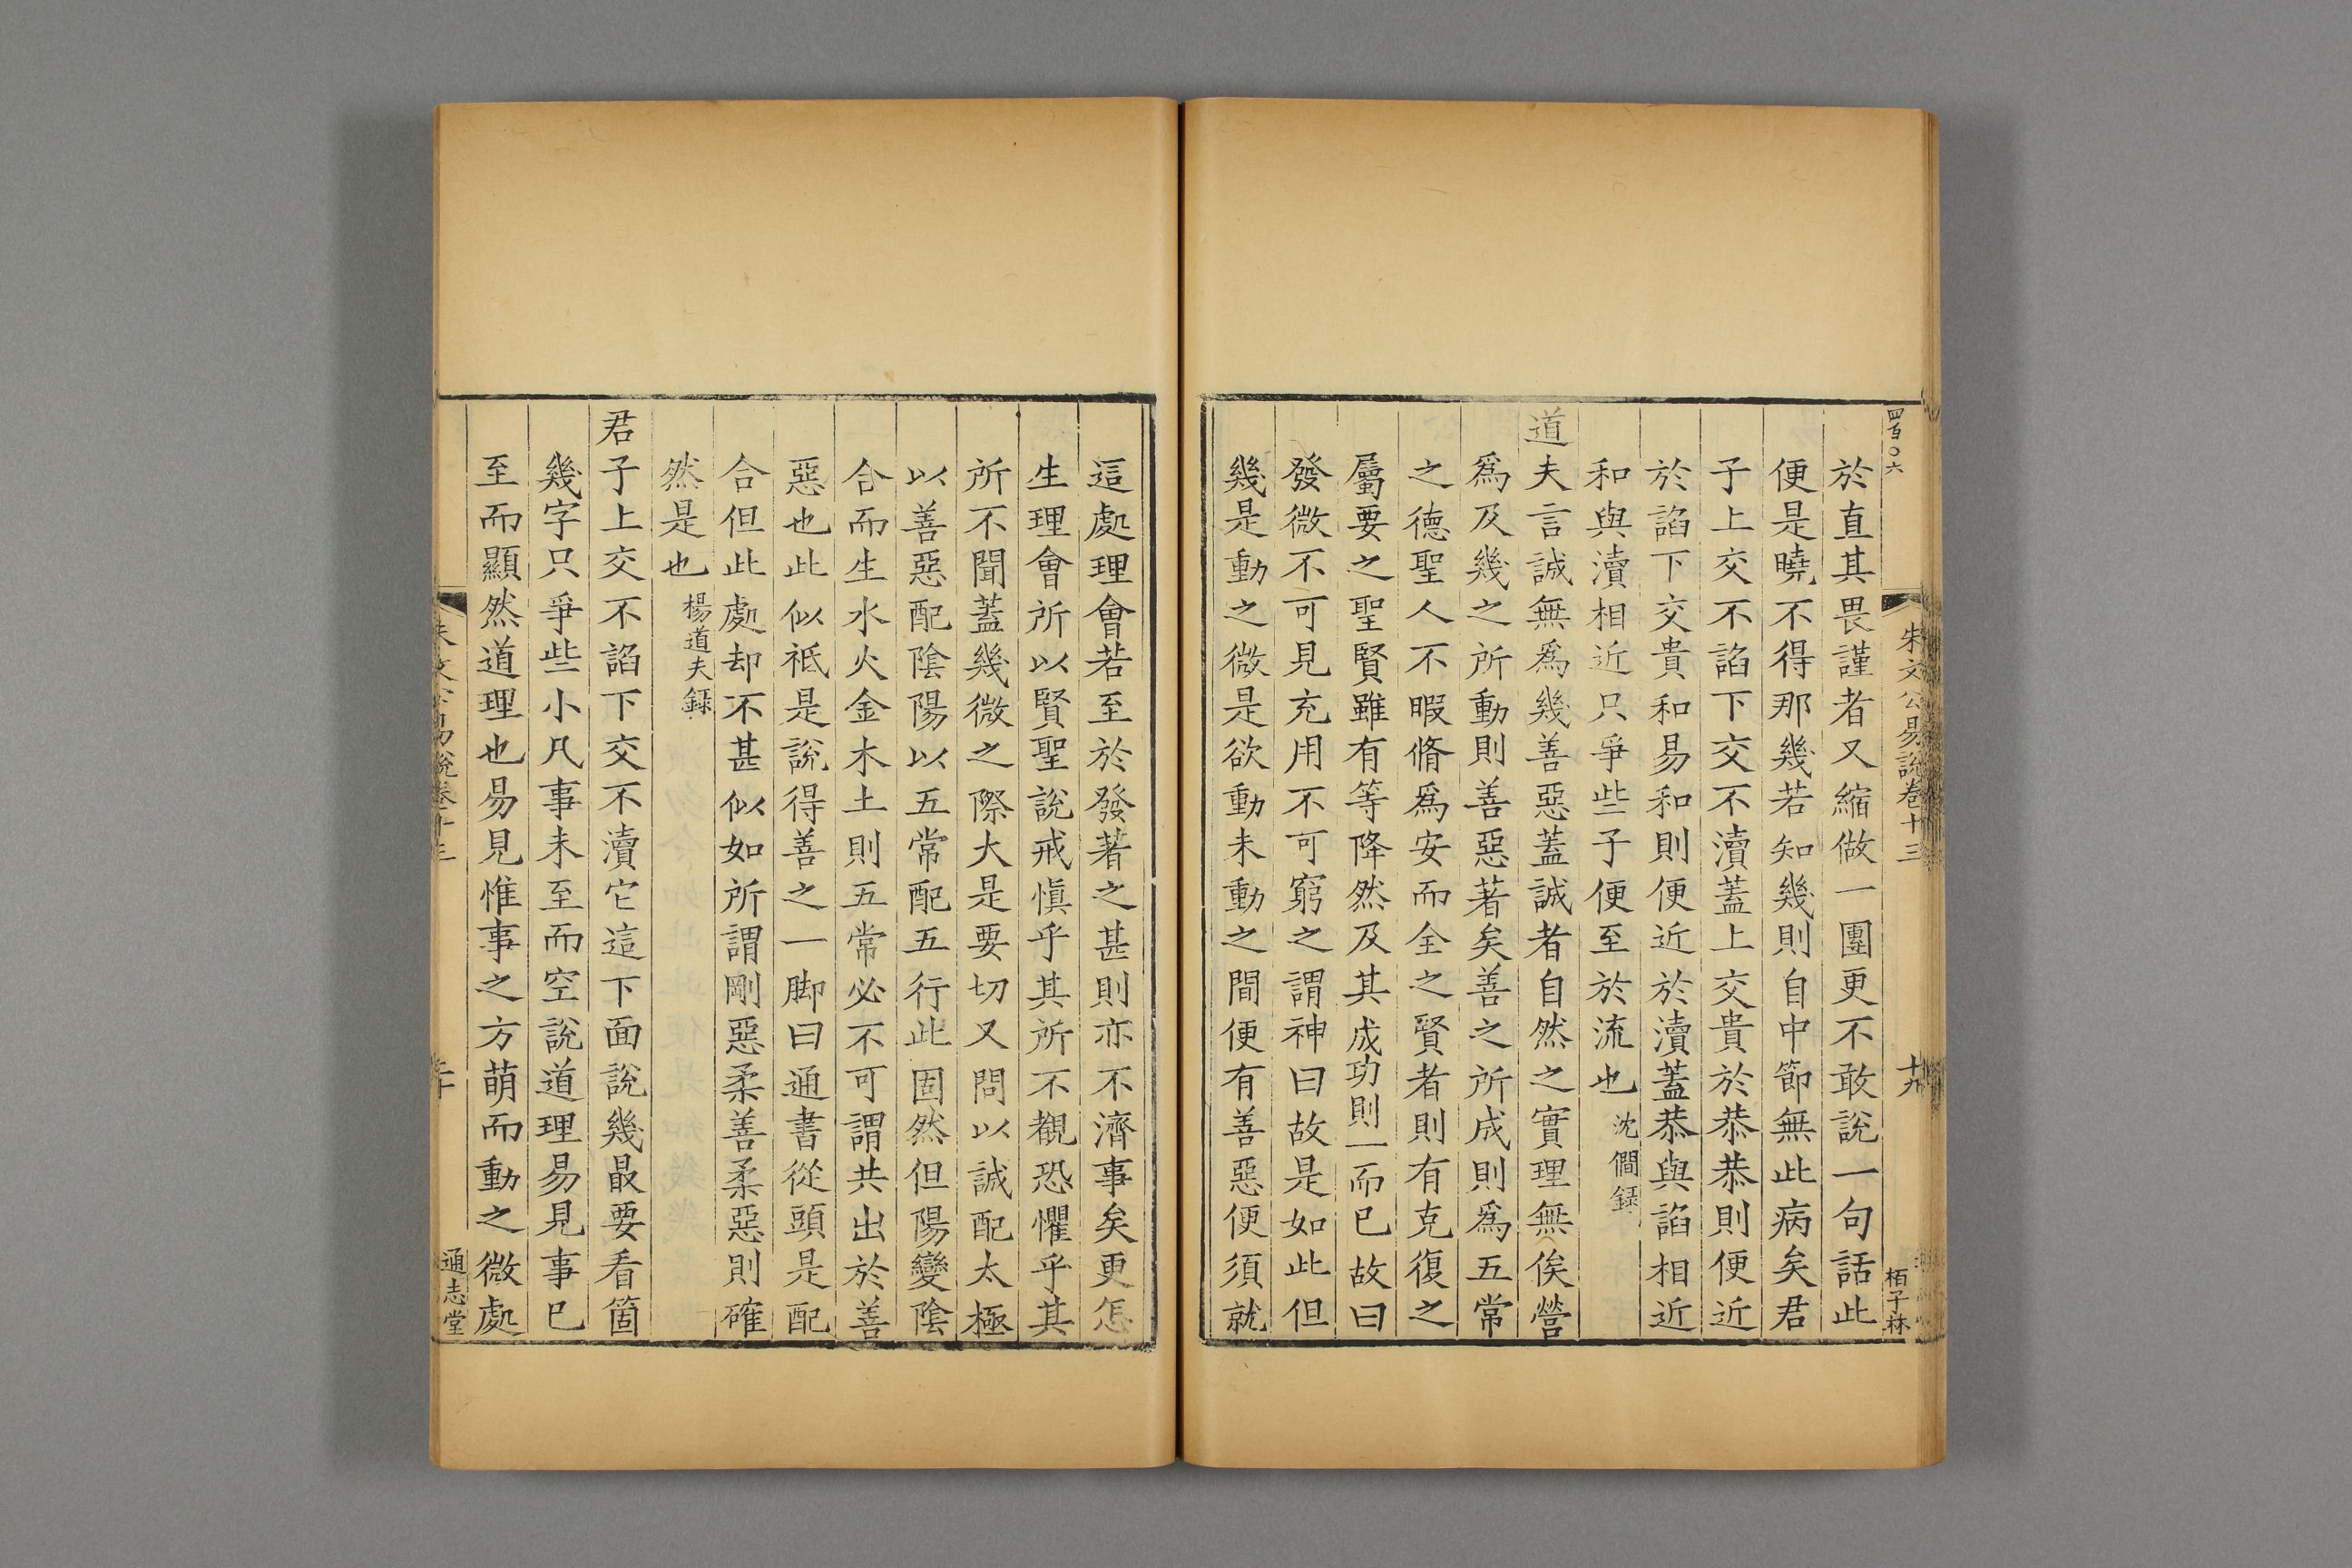 四百〇六
朱文公易說卷十三
十九
栢子林
於直其畏謹者又縮做一團更不敢說一句話此
便是曉不得那幾若知幾則自中節無此病矣君
子上交不諂下交不瀆蓋上交貴於恭恭則便近
於諂下交貴和易和則便近於瀆蓋恭與諂相近
和與瀆相近只爭些子便至於流也 沈僩録
道夫言誠無爲幾善惡蓋誠者自然之實理無俟營
爲及幾之所動則善惡著矣善之所成則爲五常
之德聖人不暇脩爲安而全之賢者則有克復之
屬要之聖賢雖有等降然及其成功則一而已故曰
發微不可見充用不可窮之謂神曰故是如此但
幾是動之微是欲動未動之間便有善惡便須就
這處理會若至於發著之甚則亦不濟事矣更怎
生理會所以賢聖說戒愼乎其所不觀恐懼乎其
所不聞蓋幾微之際大是要切又問以誠配太極
以善惡配陰陽以五常配五行此固然但陽變陰
合而生水火金木土則五常必不可謂共出於善
惡也此似祗是說得善之一脚曰通書從頭是配
合但此處却不甚似如所謂剛惡柔善柔惡則確
然是也 楊道夫録
君子上交不諂下交不瀆它這下面說幾最要看箇
幾字只爭些小凡事未至而空說道理易見事已
至而顯然道理也易見惟事之方萌而動之微處
朱文公易說卷十三
二十
通志堂